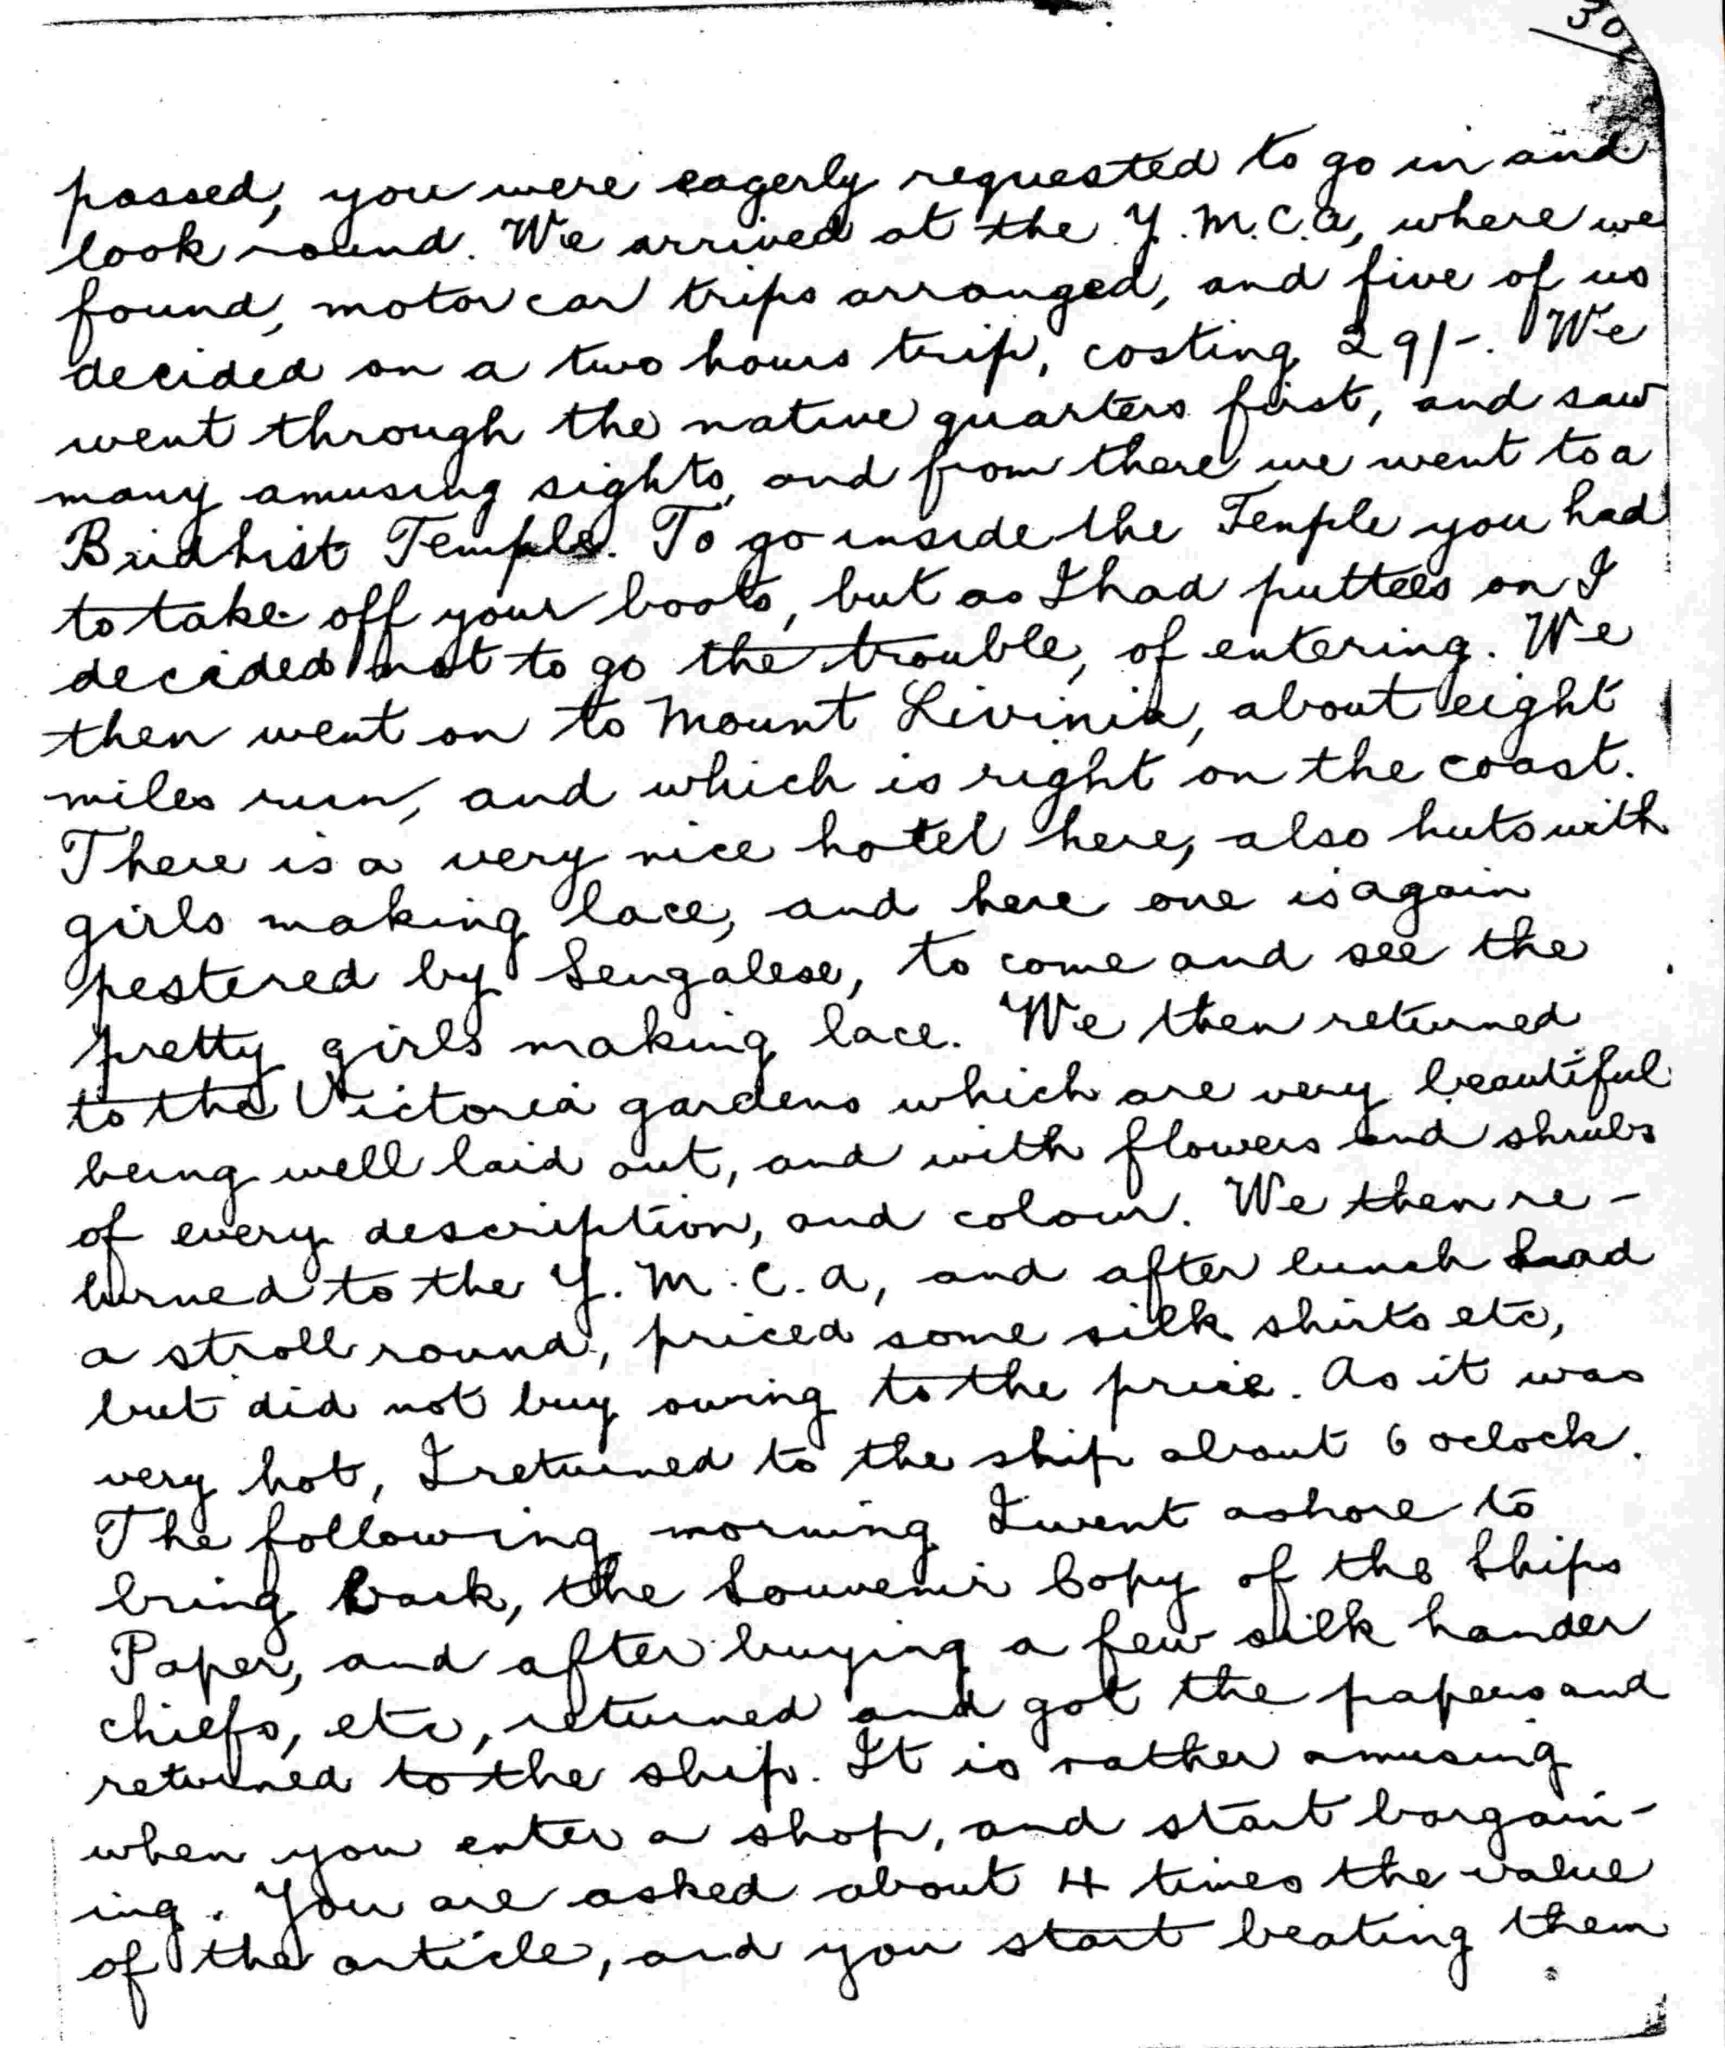 30
passed, you were eagerly requested to go in and
look round. We arrived at the Y.M.C.A, where we
found, motor car trips arranged, and five of us
decided on a two hours trip, costing 29/-. We
went through the native quarters first, and saw
many amusing sights, and from there we went to a
Budhist Temple. To go inside the Temple you had
to take off your boots, but as I had puttees on I
decided not to go the trouble, of entering. We
then went on to Mount Livinia, about eight
miles run, and which is right on the coast.
There is a very nice hotel here, also huts with
girls making lace, and here one is again
pestered by Sengalese, to come and see the
pretty girls making lace. We then returned
to the Victoria gardens which are very beautiful
being well laid out, and with flowers and shrubs
of every description, and colour. We then re-
turned to the Y.M.C.A, and after lunch had
a stroll round, priced some silk shirts etc,
but did not buy owing to the price. As it was
very hot, I returned to the ship about 6 oclock.
The following morning I went ashore to
bring back, the Souvenir Copy of the Ships
Paper, and after buying a few silk hander
chiefs, etc, returned and got the papers and
returned to the ship. It is rather amusing
when you enter a shop, and start bargain-
ing. You are asked about 4 times the value
of the article, and you start beating them